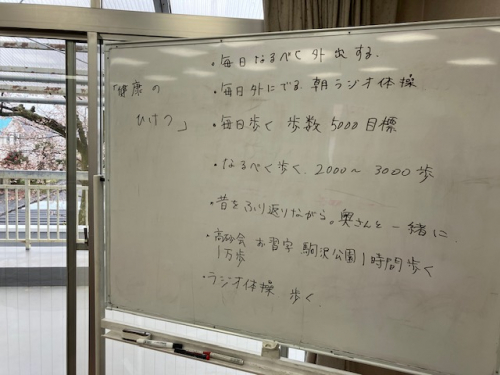 「健康の
ひけつ」
・毎日なるべく外出する.
・毎日外にでる.朝ラジオ体操
・毎日歩く 歩数5000目標
・なるべく歩く.2000〜3000歩
・昔をふり返りながら。奥さんと一緒に
・高砂会 お習字 駒沢公園1時間歩く
1万歩
・ラジオ体操 歩く.